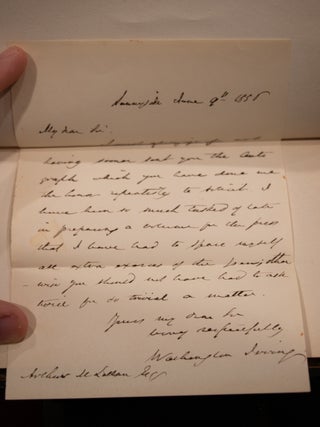 Sunnyside June 9th 1856
My dear Sir,
having sooner sent you the auto
graph which you have done me
the honor repeatedly to
I
have been so much tasked of late
in preparing a volume for the press
that I have had to spare myself
all extra exercise of the pen; other
-wise you should not have had to ask
twice for so trivial a matter.
Yours my dear Sir
very respectfully
Washington Irving
Arthur M Esq